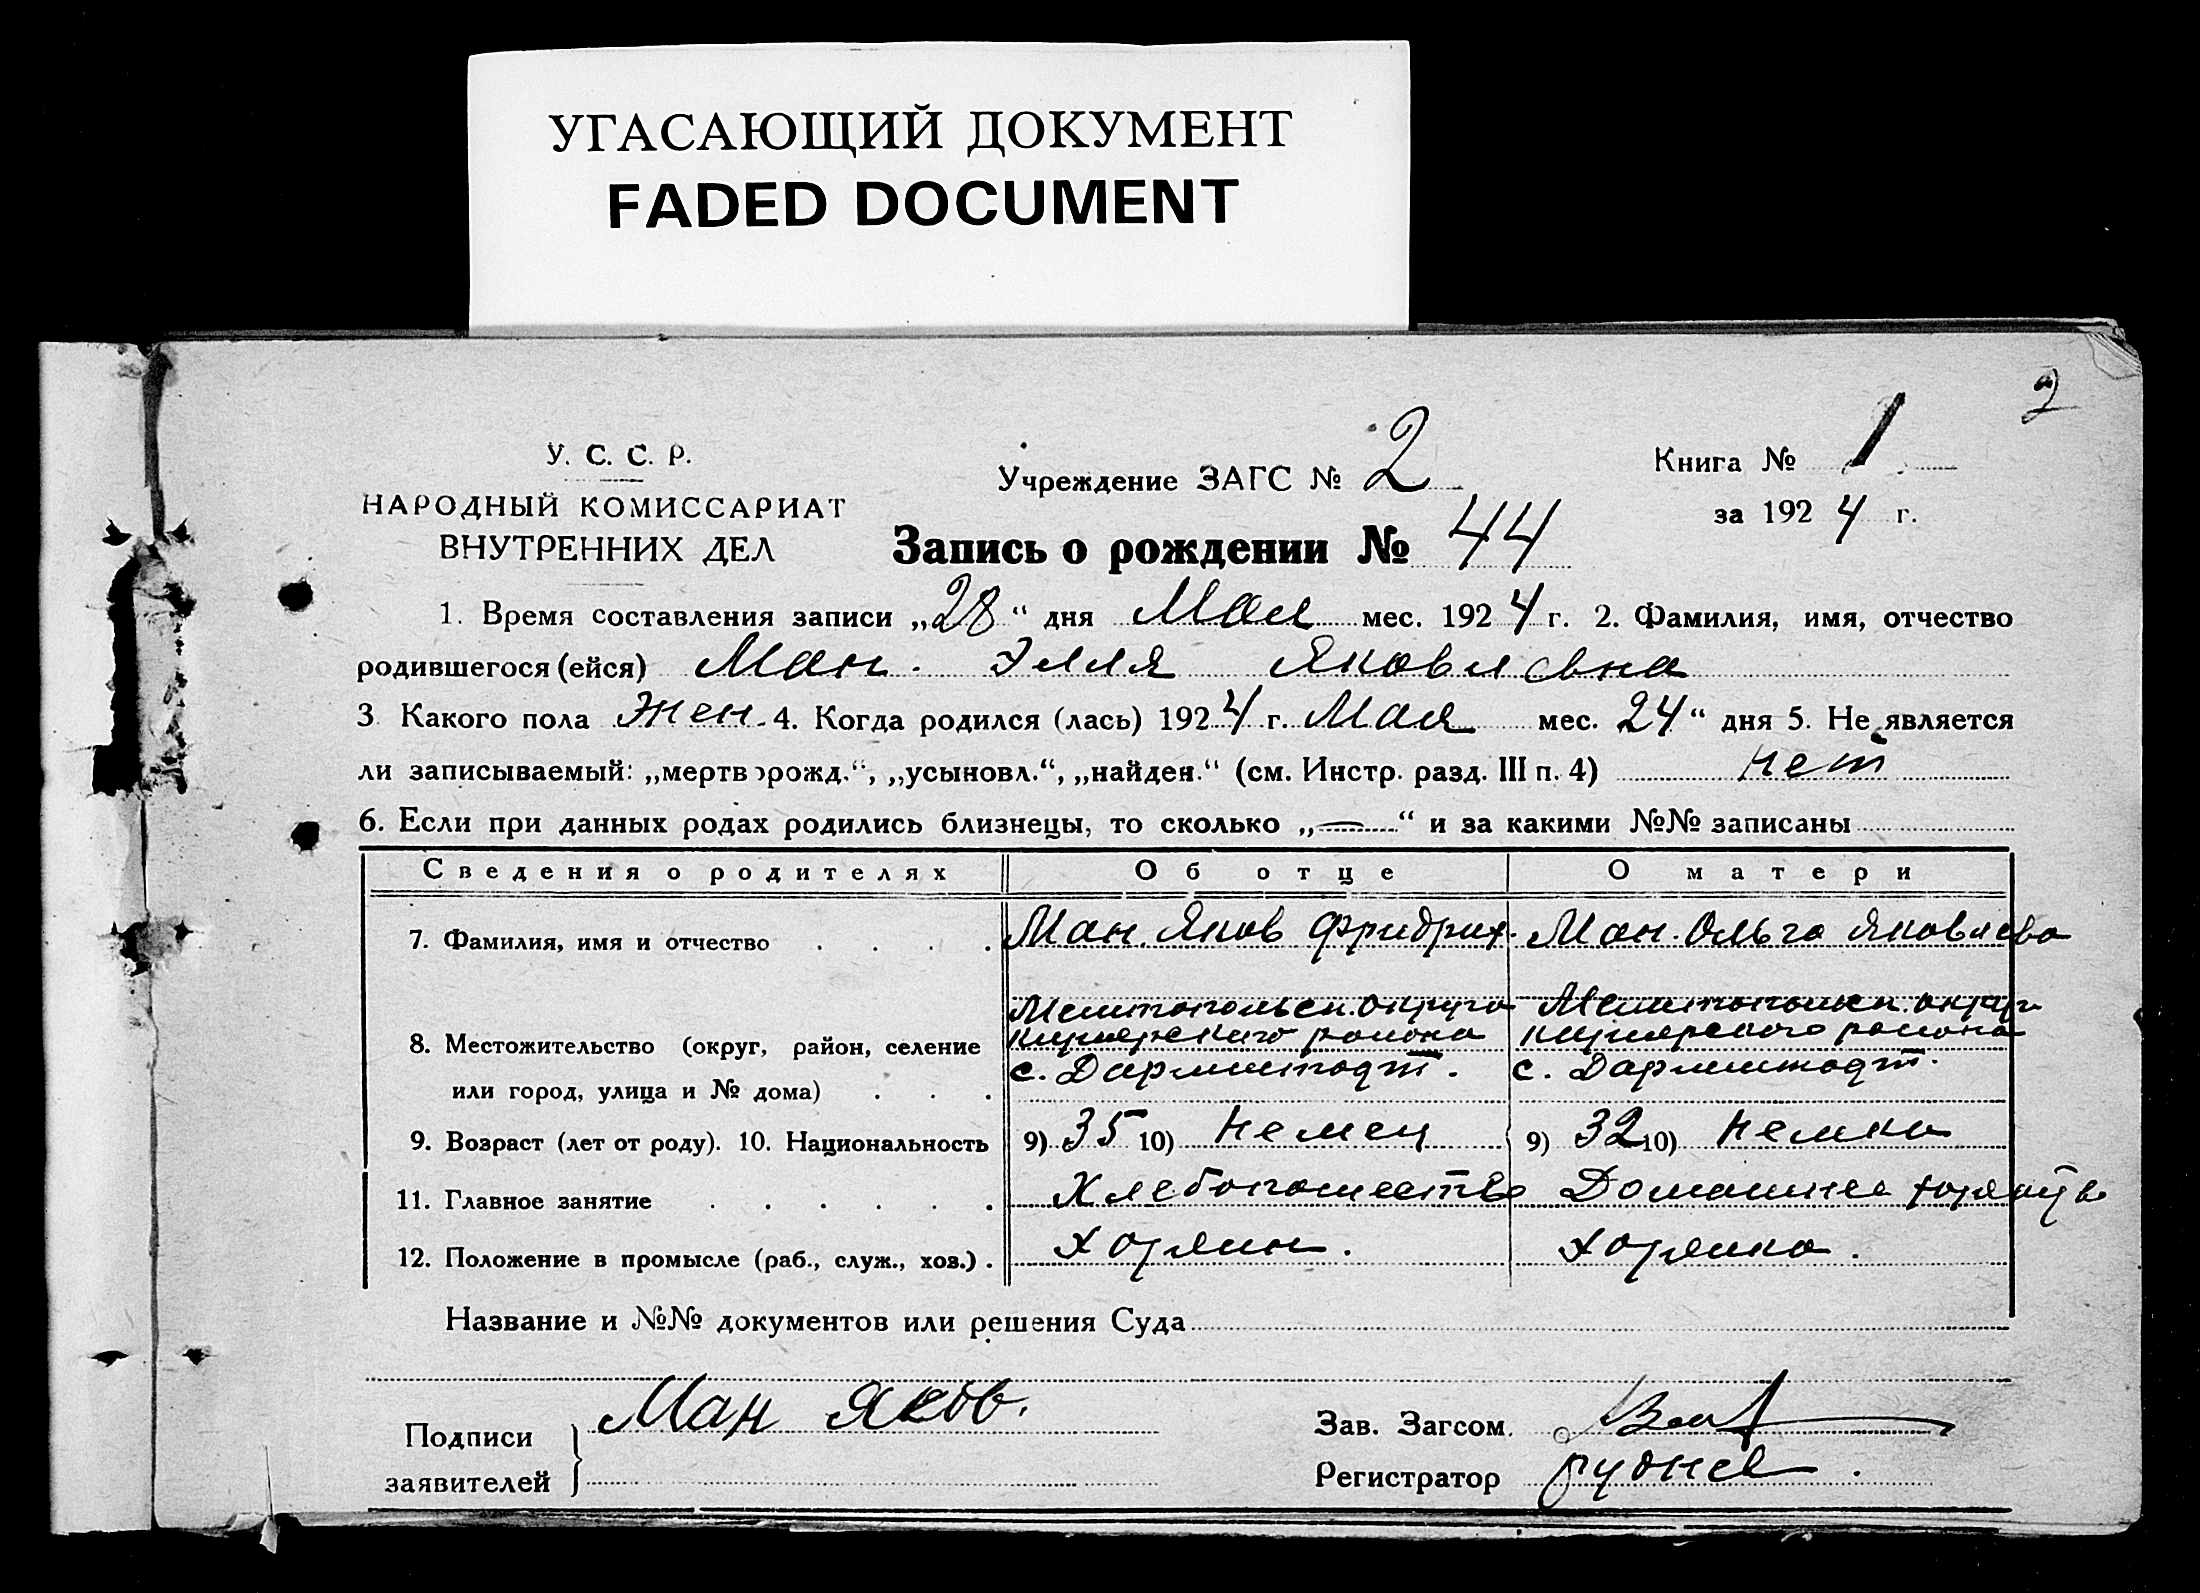 УГАСАЮЩИЙ ДОКУМЕНТ
FADED DOCUMENT
2
У. С. С. Р.
НАРОДНЫЙ КОМИССАРИАТ
ВНУТРЕННИХ ДЕЛ
Учреждение ЗАГС № 2
Книга № 1
за 1924 г.
Запись о рождении № 44
1. Время составления записи „28“ дня Мая мес. 1924 г. 2. Фамилия, имя, отчество
родившегося (ейся) Ман. Элля Яковлевна
3 Какого пола Жен. 4. Когда родился (лась) 1924 г. Мая мес. 24“ дня 5. Не является
ли записываемый: „мертворожд.“, „усыновл.“, „найден.“ (см. Инстр. разд. III п. 4) нет
6. Если при данных родах родились близнецы, то сколько „—“ и за какими №№ записаны
Сведения о родителях Об отце О матери
7. Фамилия, имя и отчество Ман. Яков Фридрих. Ман. Ольга Яковлевна
8. Местожительство (округ, район, селение Мелитопольск. округа Мелитопольск. округ
или город, улица и № дома) района района
с. Дармштадт. с. Дармштадт.
9. Возраст (лет от роду). 10. Национальность 9) 35 10) Немец 9) 32 10) Немка
11. Главное занятие Хлебопашество Домашнее
12. Положение в промысле (раб., служ., хоз.) Хозяин. Хозяйка.
Название и №№ документов или решения Суда
Подписи
заявителей
Ман Яков.
Зав. Загсом.
Регистратор